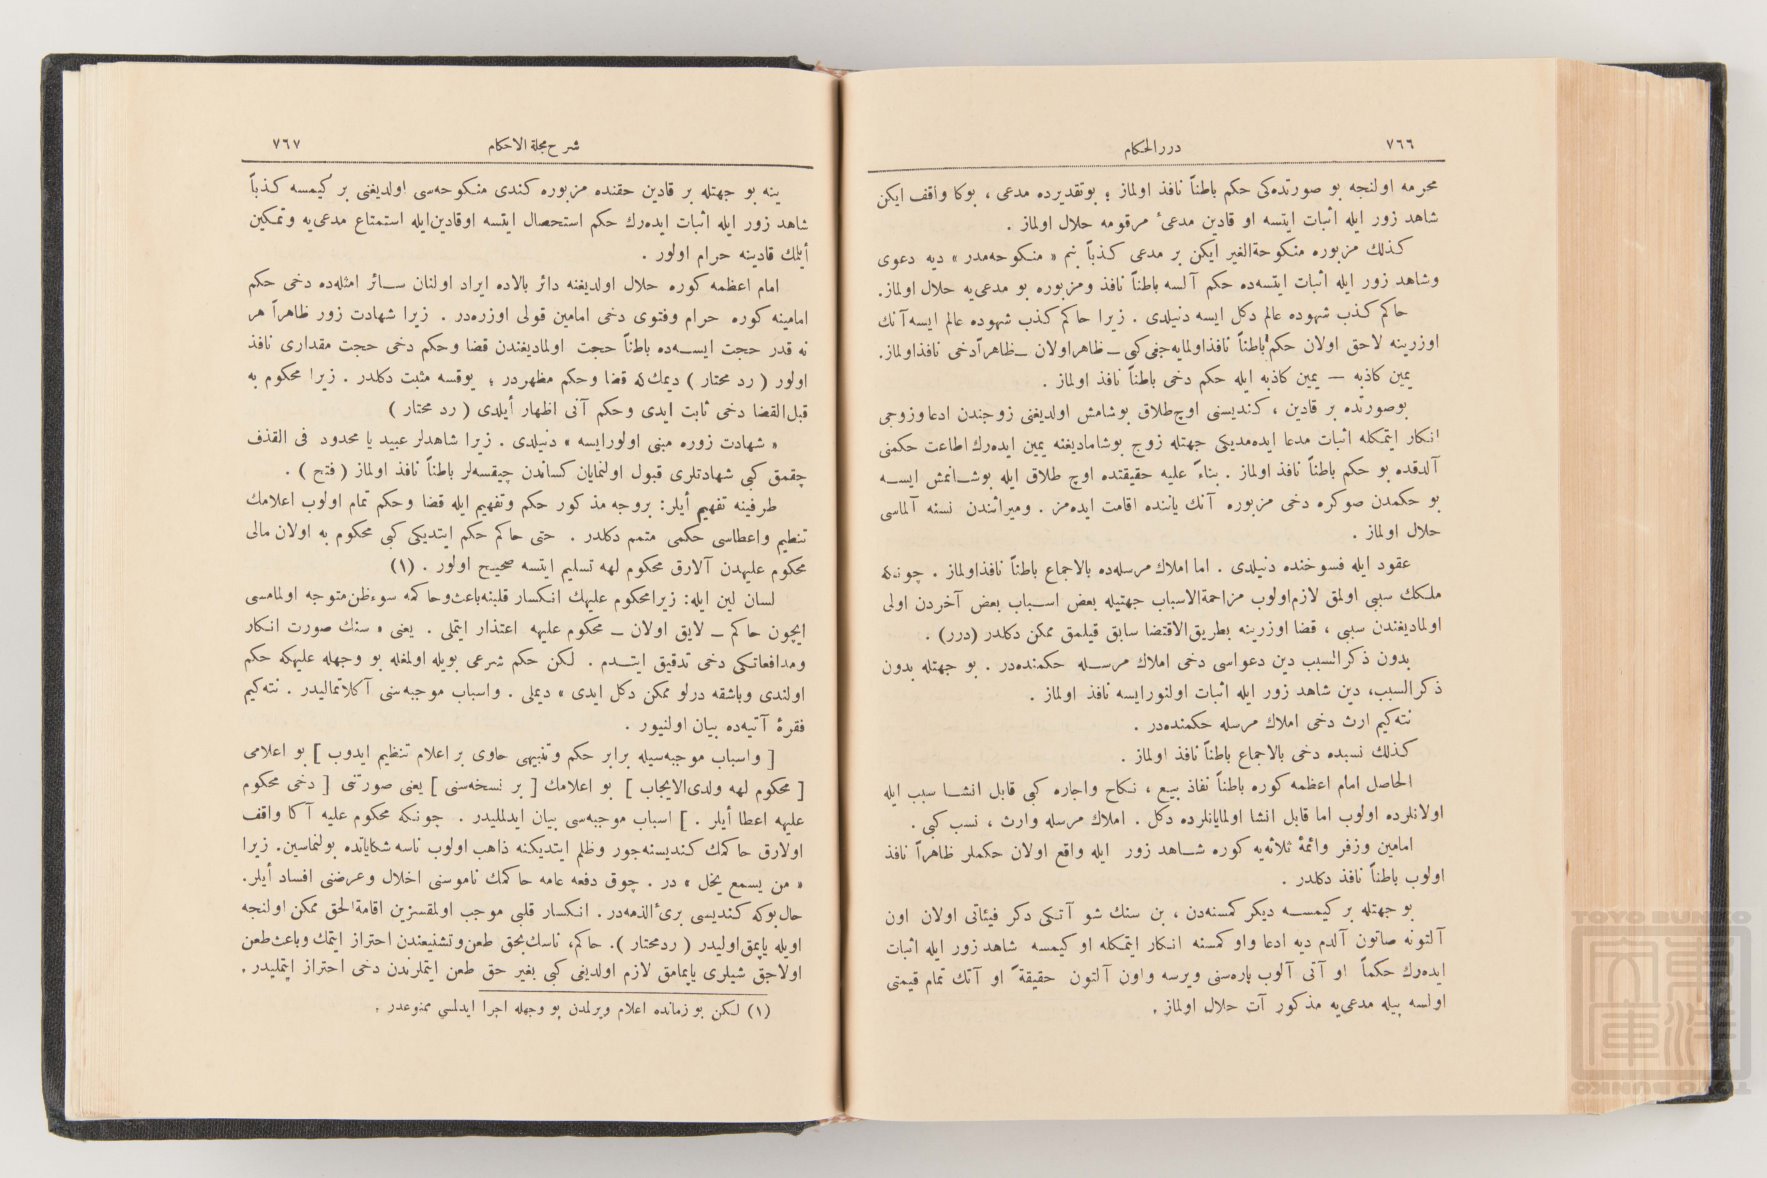 ٧٦٦
دررالحكام
محرمه اولنجه بو صورتده‌كی حكم باطناً نافذ اولماز ؛ بوتقدیرده مدعی ، بوكا واقف ایكن
شاهد زور ایله اثبات ایتسه او قادین مدعئ مرقومه حلال اولماز .
كذلك مزبوره منكوحةالغیر ایكن بر مدعی كذباً بنم « منكوحه‌مدر » دیه دعوی
وشاهد زور ایله اثبات ایتسه‌ده حكم آلسه باطناً نافذ ومزبوره بو مدعی‌یه حلال اولماز.
حاكم كذب شهوده عالم دكل ایسه دنیلدی . زیرا حاكم كذب شهوده عالم ایسه آنك
اوزرینه لاحق اولان حكم باطناً نافذاولمایه‌جغی كبی ـ ظاهراولان ـ ظاهراًدخی نافذاولماز.
یمین كاذبه — یمین كاذبه ایله حكم دخی باطناً نافذ اولماز .
بوصورتده بر قادین ، كندیسنی اوچ‌طلاق بوشامش اولدیغنی زوجندن ادعا وزوجی
انكار ایتمكله اثبات مدعا ایده‌مدیكی جهتله زوج بوشامادیغنه یمین ایده‌رك اطاعت حكمنی
آلدقده بو حكم باطناً نافذ اولماز . بناءً علیه حقیقتده اوچ طلاق ایله بوشانمش ایسه
بو حكمدن صوكره دخی مزبوره آنك یاننده اقامت ایده‌مز . ومیراثندن نسنه آلماسی
حلال اولماز .
عقود ایله فسوخنده دنیلدی . اما املاك مرسله‌ده بالاجماع باطناً نافذاولماز . چونكه
ملكك سببی اولمق لازم‌اولوب مزاحمةالاسباب جهتیله بعض اسباب بعض آخردن اولی
اولمادیغندن سببی ، قضا اوزرینه بطریق‌الاقتضا سابق قیلمق ممكن دكلدر (درر) .
بدون ذكرالسبب دین دعواسی دخی املاك مرسله حكمنده‌در . بو جهتله بدون
ذكرالسبب، دین شاهد زور ایله اثبات اولنورایسه نافذ اولماز .
نته‌كیم ارث دخی املاك مرسله حكمنده‌در .
كذلك نسبده دخی بالاجماع باطناً نافذ اولماز .
الحاصل امام اعظمه كوره باطناً نفاذ بیع ، نكاح واجاره كبی قابل انشا سبب ایله
اولانلرده اولوب اما قابل انشا اولمایانلرده دكل . املاك مرسله وارث ، نسب كبی .
امامین وزفر وائمۀ ثلاثه‌یه كوره شاهد زور ایله واقع اولان حكملر ظاهراً نافذ
اولوب باطناً نافذ دكلدر .
بو جهتله بر كیمسه دیكر كمسنه‌دن ، بن سنك شو آتكی دكر فیئاتی اولان اون
آلتونه صاتون آلدم دیه ادعا واو كمسنه انكار ایتمكله او كیمسه شاهد زور ایله اثبات
ایده‌رك حكماً او آتی آلوب پاره‌سنی ویرسه واون آلتون حقیقةً او آتك تمام قیمتی
اولسه بیله مدعی‌یه مذكور آت حلال اولماز .
شرح مجلة الاحكام
٧٦٧
ینه بو جهتله بر قادین حقنده مزبوره كندی منكوحه‌سی اولدیغنی بر كیمسه كذباً
شاهد زور ایله اثبات ایده‌رك حكم استحصال ایتسه اوقادین‌ایله استمتاع مدعی‌یه وتمكین
أیلمك قادینه حرام اولور .
امام اعظمه كوره حلال اولدیغنه دائر بالاده ایراد اولنان سائر امثله‌ده دخی حكم
امامینه كوره حرام وفتوی دخی امامین قولی اوزره‌در . زیرا شهادت زور ظاهراً هر
نه قدر حجت ایسه‌ده باطناً حجت اولمادیغندن قضا وحكم دخی حجت مقداری نافذ
اولور ( رد محتار ) دیمك‌كه قضا وحكم مظهردر ؛ یوقسه مثبت دكلدر . زیرا محكوم به
قبل‌القضا دخی ثابت ایدی وحكم آنی اظهار أیلدی ( رد محتار )
« شهادت زوره مبنی اولورایسه » دنیلدی . زیرا شاهدلر عبید یا محدود فی القذف
چقمق كبی شهادتلری قبول اولنمایان كساندن چیقسه‌لر باطناً نافذ اولماز ( فتح ) .
طرفینه تفهیم أیلر: بروجه مذكور حكم وتفهیم ایله قضا وحكم تمام اولوب اعلامك
تنظیم واعطاسی حكمی متمم دكلدر . حتی حاكم حكم ایتدیكی كبی محكوم به اولان مالی
محكوم علیهدن آلارق محكوم لهه تسلیم ایتسه صحیح اولور . (١)
لسان لین ایله: زیرامحكوم علیهك انكسار قلبنه‌باعث‌وحاكمه سوءظن‌متوجه اولمامسی
ایچون حاكم ـ لایق اولان ـ محكوم علیهه اعتذار ایتملی . یعنی « سنك صورت انكار
ومدافعاتكی دخی تدقیق ایتدم . لكن حكم شرعی بویله اولمغله بو وجهله علیهكه حكم
اولندی وباشقه درلو ممكن دكل ایدی » دیملی . واسباب موجبه‌سنی آكلاتمالیدر . نته‌كیم
فقرۀ آتیه‌ده بیان اولنیور .
[ واسباب موجبه‌سیله برابر حكم وتنبیهی حاوی بر اعلام تنظیم ایدوب ] بو اعلامی
[ محكوم لهه ولدی‌الایجاب ] بو اعلامك [ بر نسخه‌سنی ] یعنی صورتنی [ دخی محكوم
علیهه اعطا أیلر . ] اسباب موجبه‌سی بیان ایدلملیدر . چونكه محكوم علیه آكا واقف
اولارق حاكمك كندیسنه‌جور وظلم ایتدیكنه ذاهب اولوب ناسه شكایاتده بولنماسین. زیرا
« من یسمع یخل » در . چوق دفعه عامه حاكمك ناموسنی اخلال وعرضنی افساد أیلر.
حال‌بوكه كندیسی برئ‌الذمه‌در. انكسار قلبی موجب اولمقسزین اقامةالحق ممكن اولنجه
اویله یاپمق‌اولیدر ( ردمحتار ). حاكم، ناسك‌بحق طعن‌وتشنیعندن احتراز ایتمك وباعث‌طعن
اولاجق شیلری یاپمامق لازم اولدیغی كبی بغیر حق طعن ایتملرندن دخی احتراز ایتملیدر .
(١) لكن بو زمانده اعلام ویرلمدن بو وجهله اجرا ایدلمسی ممنوعدر .